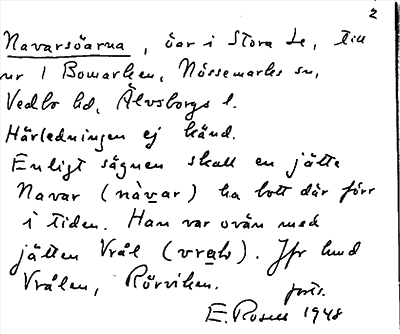 2
Navarsöarna, öar i Stora Le, till
nr 1 Bomarken, Nössemarks sn,
Vedbo hd, Älvsborgs l.
Härledningen ej känd.
Enligt sägnen skall en jätte
Navar (nàvar) ha bott där förr
i tiden. Han var ovän med
jätten Vrål (vralo). Jfr hmd
Vrålen, Rörviken.
forts.
E. Rosell 1948